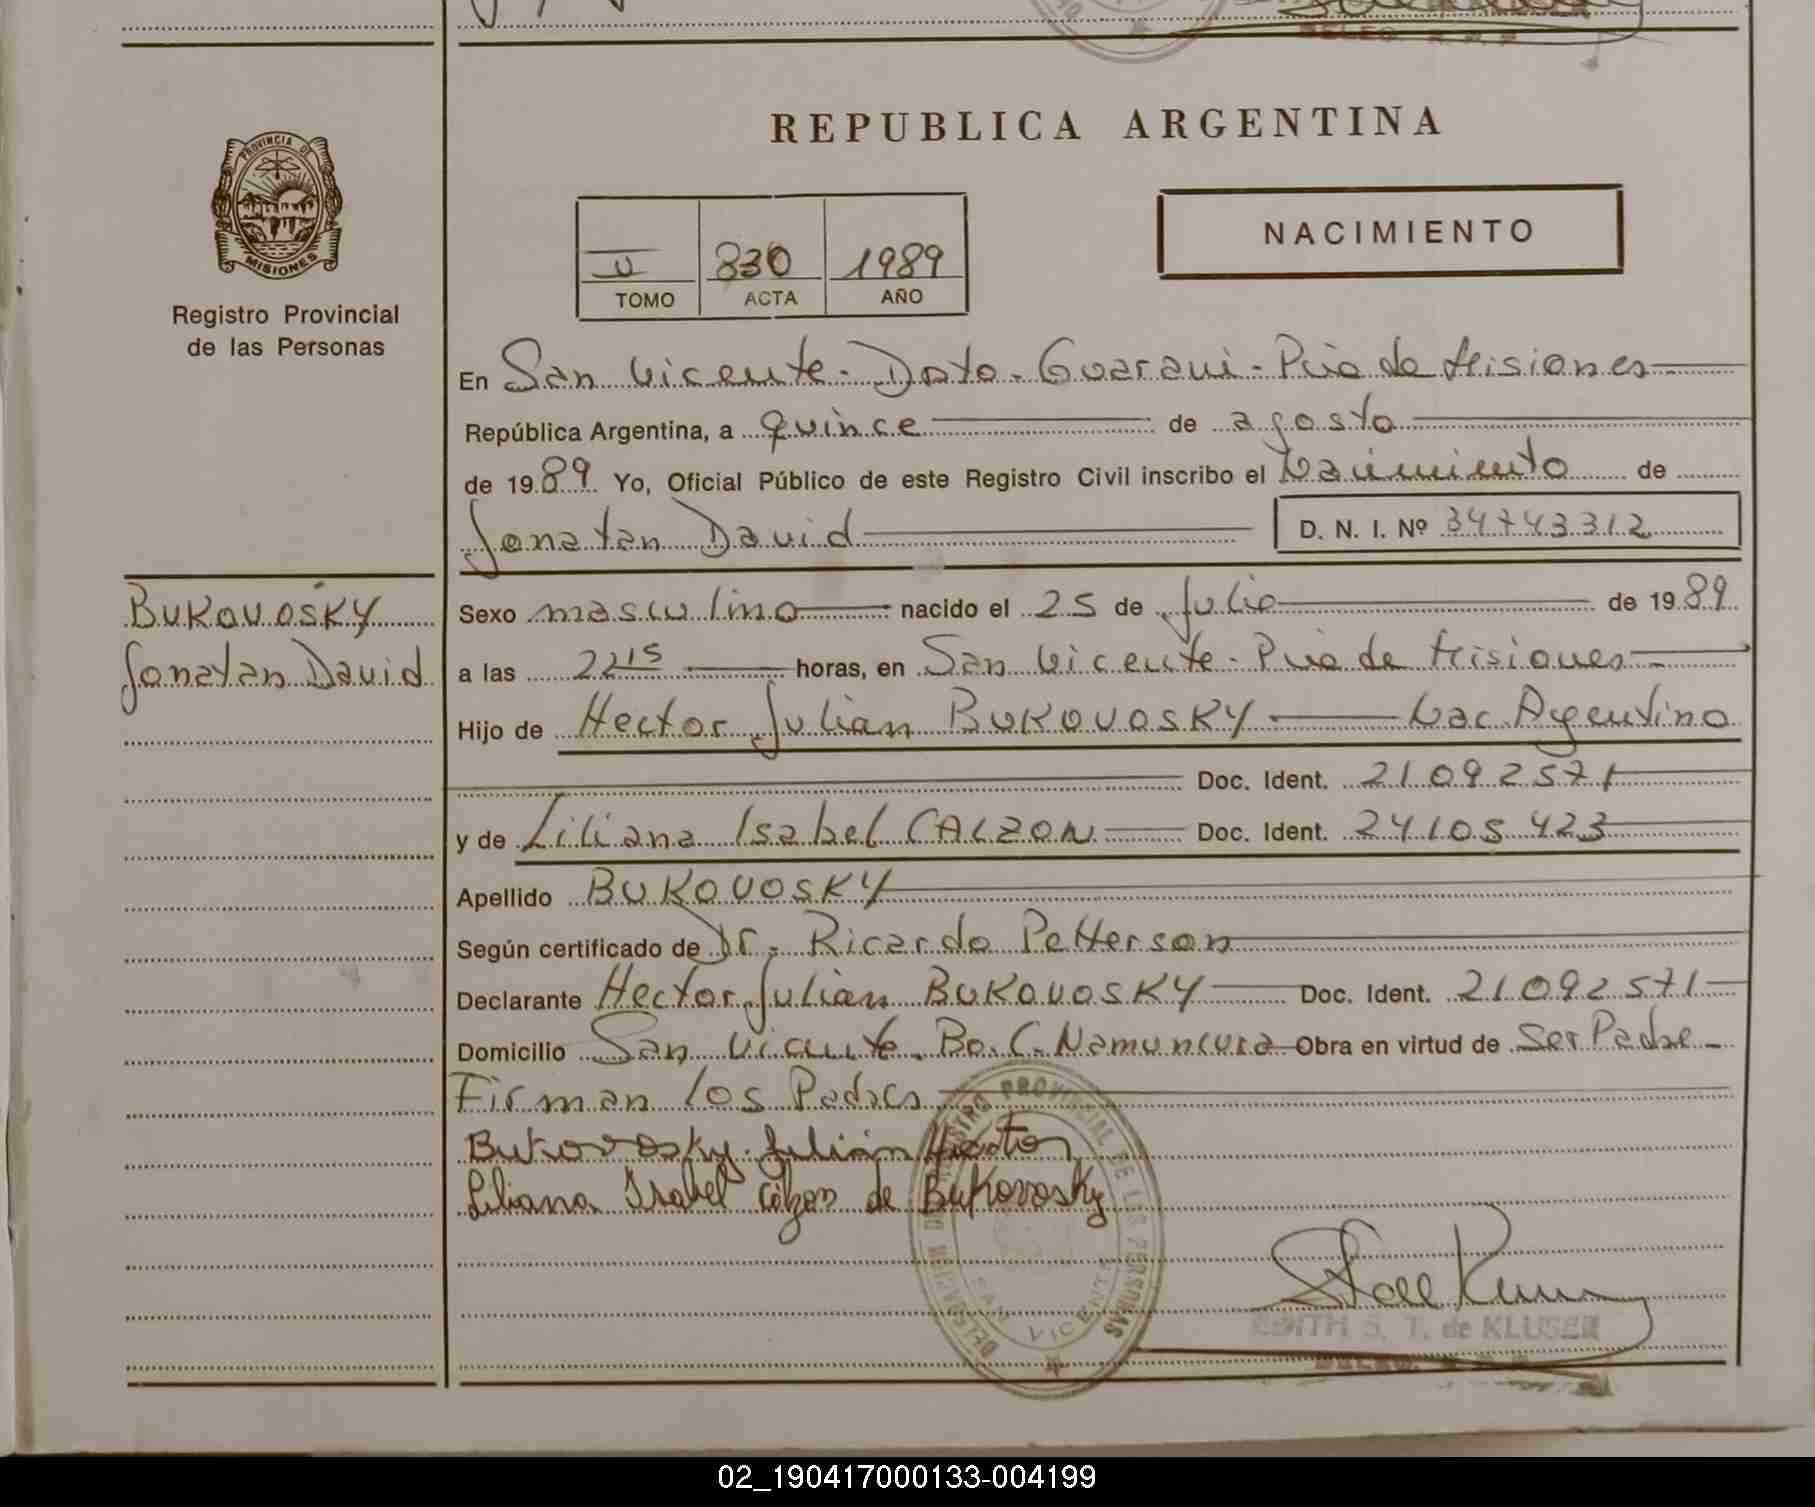 REPUBLICA ARGENTINA
PROVINCIA DE
MISIONES
Registro Provincial
de las Personas
NACIMIENTO
II 830 1989
TOMO ACTA AÑO
En San Vicente - Dpto. Guarani - Pcia de Misiones
República Argentina, a quince de agosto
de 1989 Yo, Oficial Público de este Registro Civil inscribo el Nacimiento de
Jonatan David D. N. I. Nº 34743312
BUKOVOSKY
Jonatan David
Sexo masculino nacido el 25 de Julio de 1989
a las 22 15 horas, en San Vicente - Pcia de Misiones
Hijo de Hector Julian BUKOVOSKY Nac. Argentino
Doc. Ident. 21092571
y de Liliana Isabel CALZON Doc. Ident. 24105423
Apellido BUKOVOSKY
Según certificado de Dr. Ricardo Petterson
Declarante Hector Julian BUKOVOSKY Doc. Ident. 21092571
Domicilio San Vicente. Bo. C. Namuncura Obra en virtud de Ser Padre
Firman los Padres
Bukovosky Julián Hector
Liliana Isabel de Bukovosky
REGISTRO PROVINCIAL DE LAS PERSONAS
DELEGACION
SAN VICENTE
EDITH S. T. de KLUSER
02_190417000133-004199